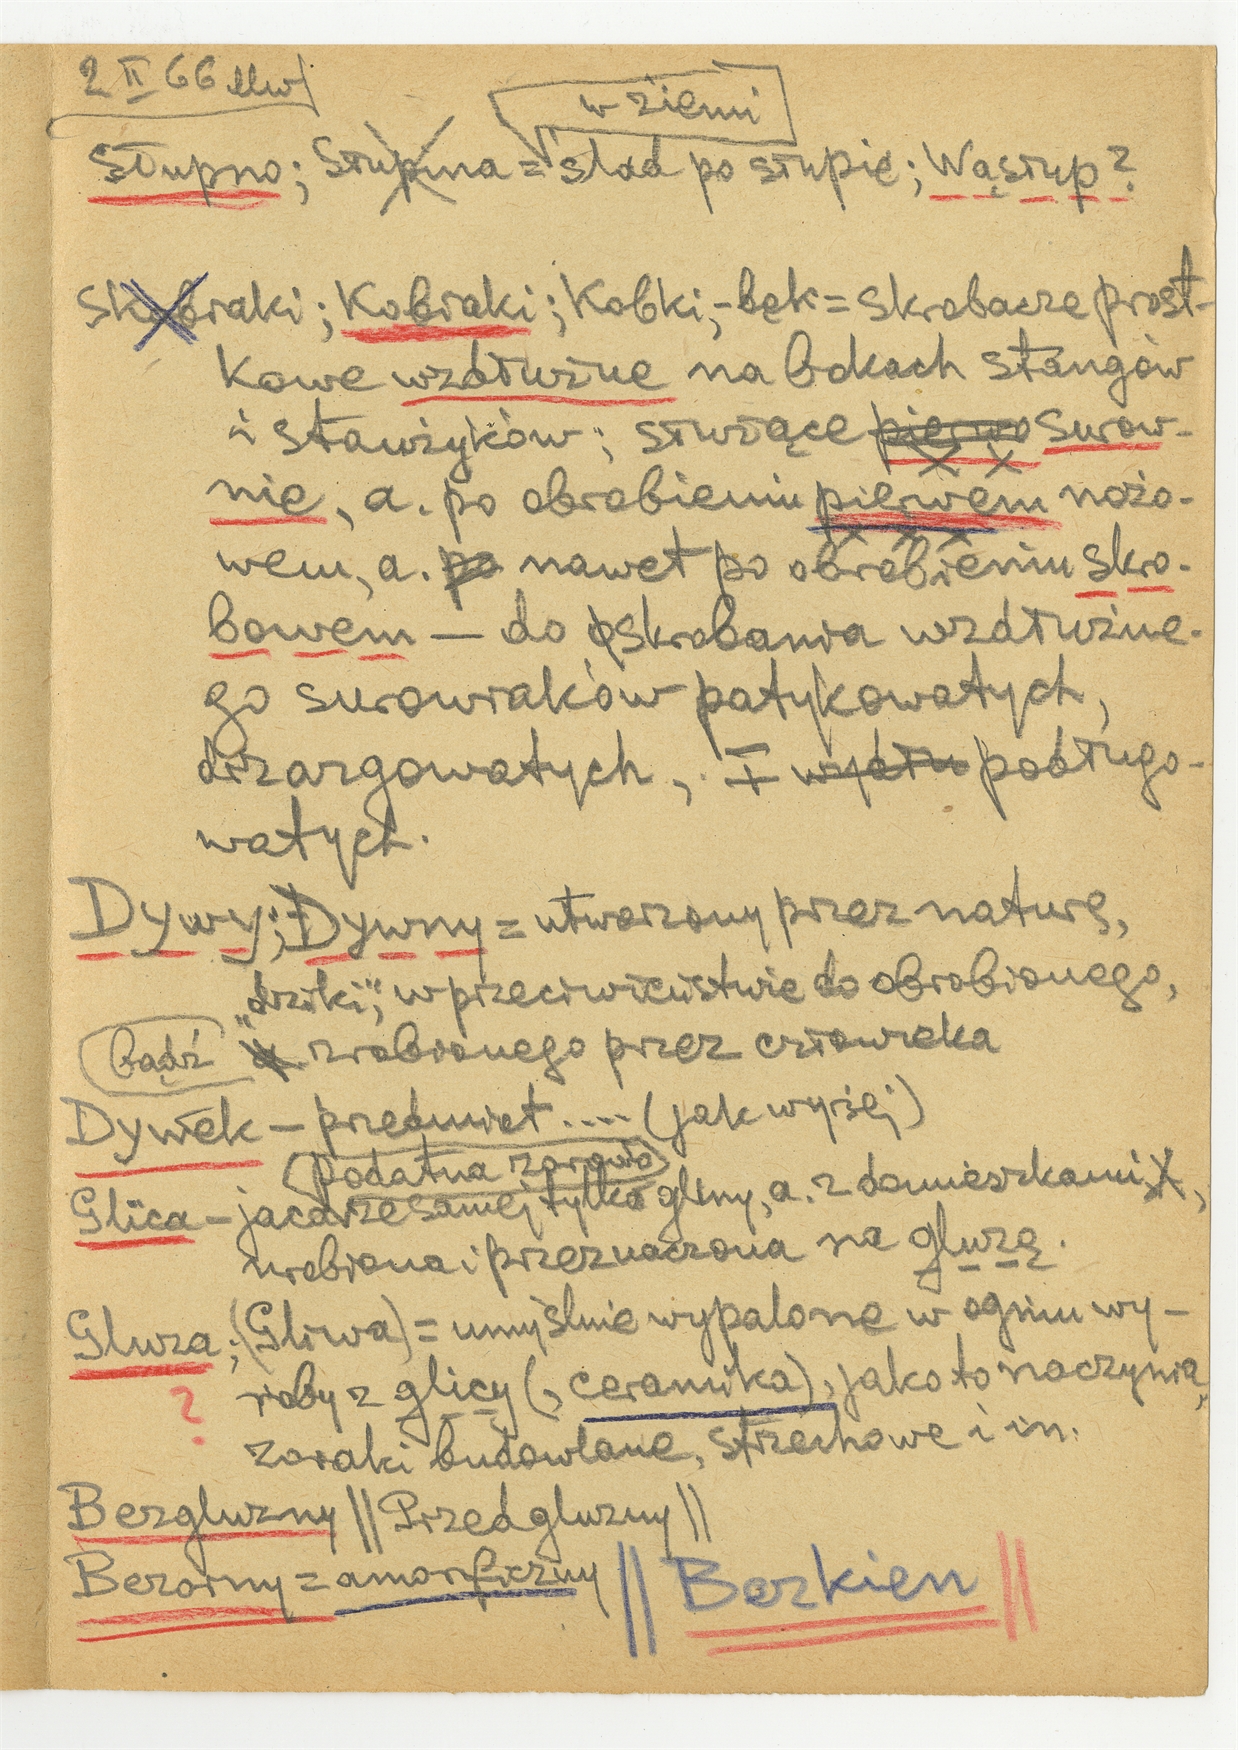 2 II 66 Mw
w ziemi
Słupno; Słupina = ślad po słupie; Wąsłup?
Skobiaki; Kobiaki; Kobki, -bęk = skrobacze prost-
kowe wzdłużne na bokach stangów
i stawżyków; służące pierwo surow-
nie, a. po obrobieniu pierwem nożo-
wem, a. po nawet po obrobieniu skro-
bowem — do oskrobania wzdłużne-
go surowiaków patykowatych,
drzazgowatych, ± wydłu podługo-
watych.
Dywy; Dywny = utworzony przez naturę,
„dziki”, w przeciwieństwie do obrobionego,
bądź zrobionego przez człowieka
Dywek – przedmiot .... (jak wyżej)
podatna zarowio
Glica – jacarze samej tylko gliny, a. z domieszkami,
urobiona i przeznaczona na gluzę.
Gluza; (Gliwa) = umyślnie wypalone w ogniu wy-
roby z glicy (, ceramika), jako to naczynia,
zoraki budowlane, strzechowe i in.
?
Bezgluzny || Przedgluzny ||
Bezorny = amorficzny || Bezkien ||